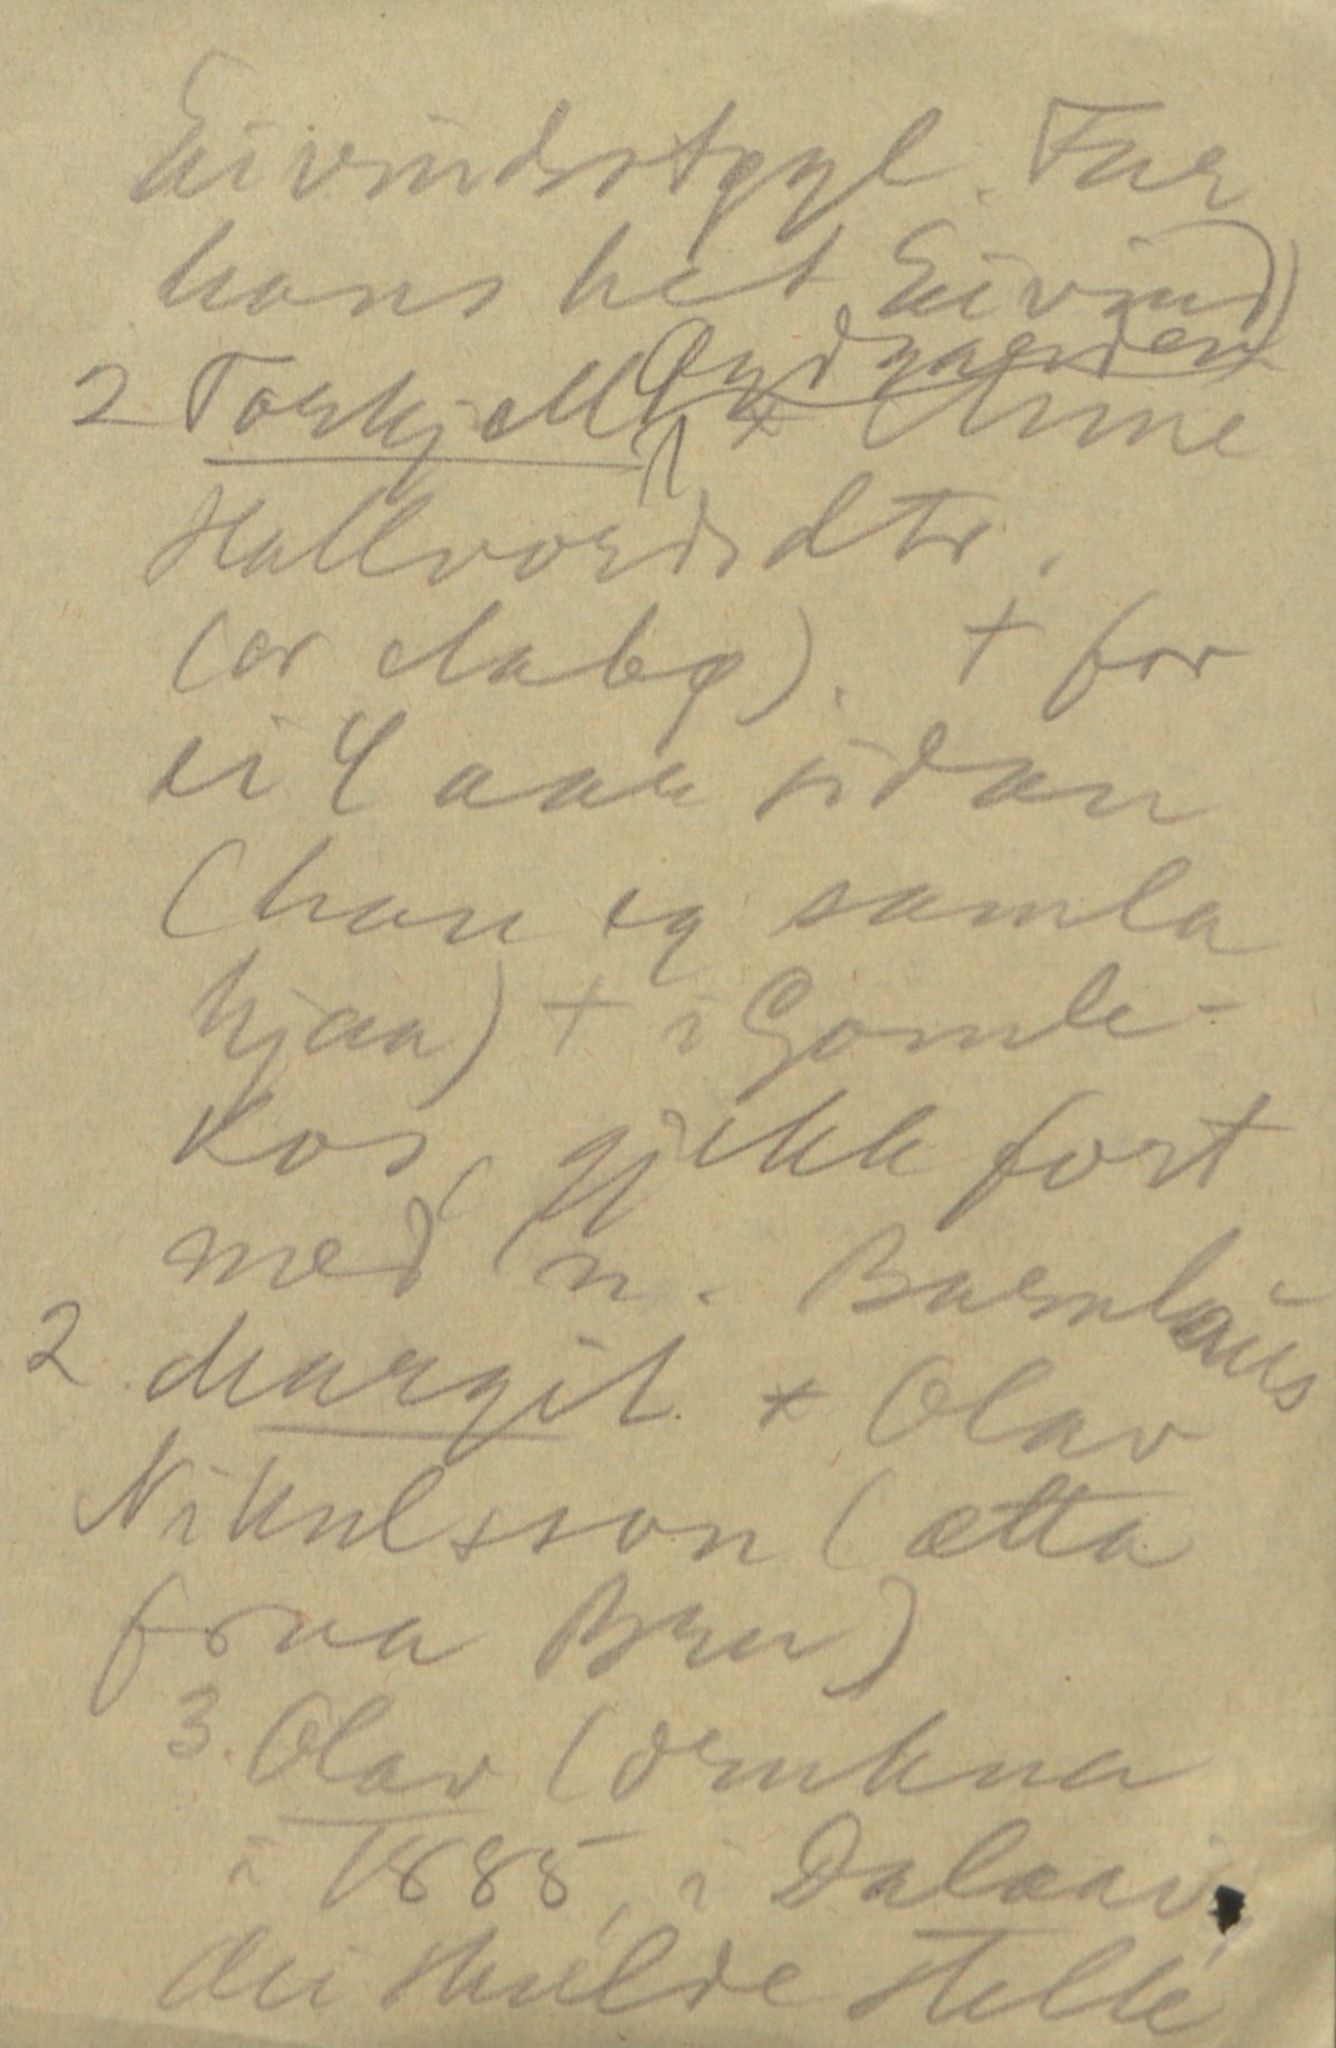 Eivindstgyl. Far
hans het Eivind)
2 Torkjell Nydgarden * Anne
Hallvordsdtr.
(or Mabø). + for
ei 4 aar sidan
(han eg samla
hjaa) + i Gamle-
kos, gjekk fort
med 'n. Barnlaus
2 Margit * Olav
Nikulsson (ætta
fraa Bru)
3. Olav (drukna
i 1885, i Dalaai,
dei skulde stelle